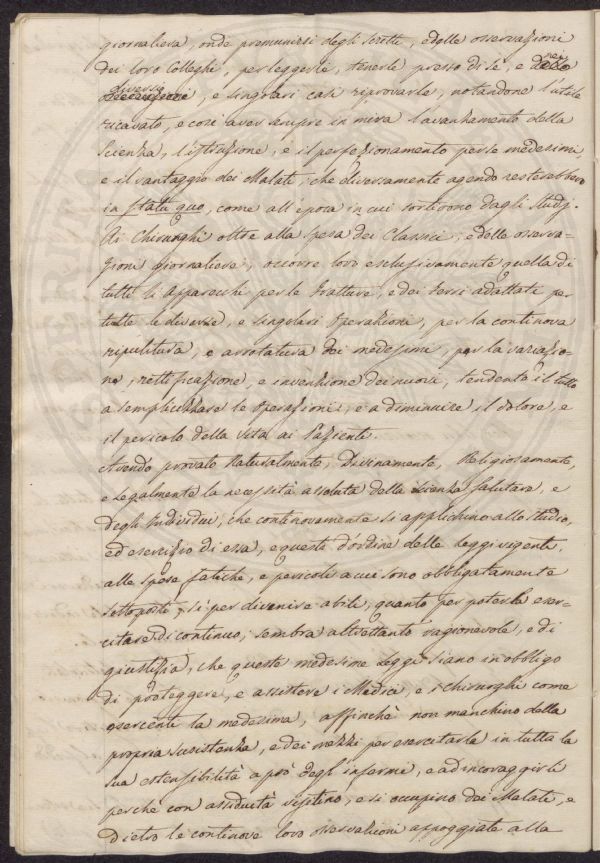 giornaliera, onde premunirsi degli scritti, e dalle osservazioni
dei loro Colleghi, per leggerli, tenerli presso di se, e nei
diversi, e singolari casi riprovarle, notandone l'utile
ricavato, e così aver sempre in mira l'avanzamento della
Scienza, l'istruzione, e il perfezionamento per se medesimi,
e il vantaggio dei Malati, che diversamente agendo resterebbero
in statu quo, come all'epoca in cui sortirono dagli studj.
Ai Chirurghi oltre alla spesa dei Classici, e delle osserva-
zioni giornaliere, occorre loro esclusivamente quella di
tutti li apparecchi per le fratture, e dei ferri adattati per
tutte le diverse, e singolari operazioni, per la continova
ripulitura, e arrotatura dei medesimi, per la variazio-
ne, rettificazione, e invenzione dei nuovi, tendente il tutto
a semplicizzare le operazioni, e a diminuire il dolore, e
il pericolo della vita ai Pazienti.
Avendo provato Naturalmente, Divinamente, Religiosamente,
e Legalmente la necessità assoluta della Scienza salutare, e
degli Individui, che continovamente si applichino allo studio,
ed esercizio di essa, e questi d'ordine delle Leggi vigenti,
alle spese fatiche, e pericoli a cui sono obbligatamente
sottoposti, sì per divenire abili, quanto per poterla eser-
citare di continuo, sembra altrettanto ragionevole, e di
giustizia, che queste medesime leggi siano in obbligo
di proteggere, e assistere i Medici, e i chirurghi come
esercenti la medesima, affinchè non manchino della
propria susistenza, e dei mezzi per esercitarla in tutta la
sua estensibilità a prò degli infermi, e ad incoraggirli
perche con assiduità visitino, e si occupino dei Malati, e
dietro le continove loro osservazioni appoggiate alla